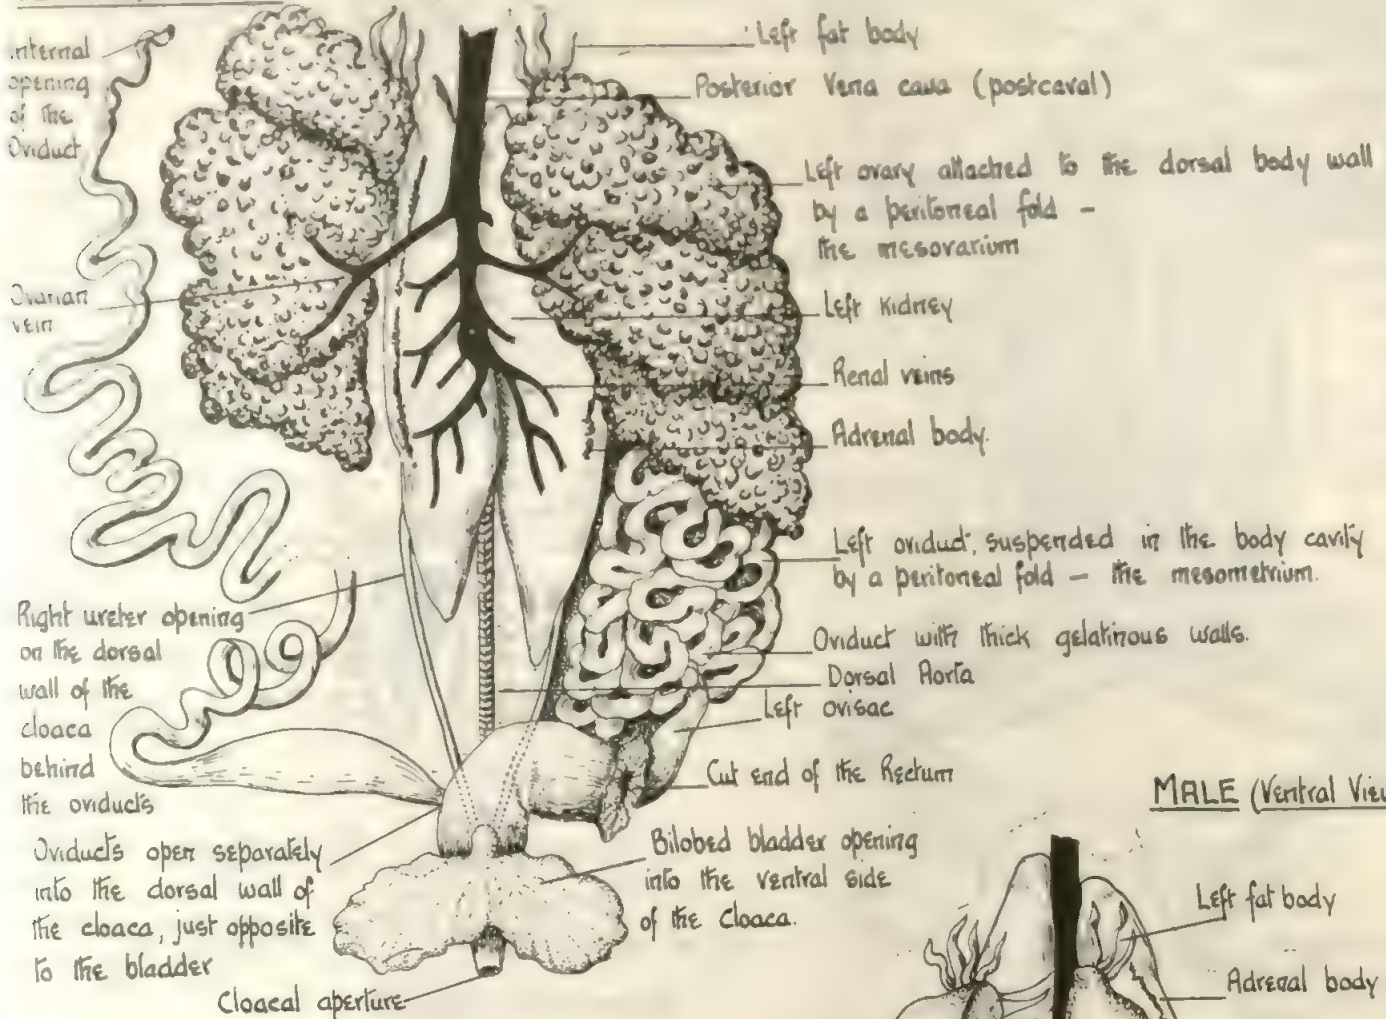 Internal
opening
of the
Oviduct
Ovarian
vein
Right ureter opening
on the dorsal
wall of the
cloaca
behind
the oviducts
Oviducts open separately
into the dorsal wall of
the cloaca, just opposite
to the bladder
Cloacal aperture
Left fat body
Posterior Vena cava (postcaval)
Left ovary attached to the dorsal body wall
by a peritoneal fold -
the mesovarium
Left Kidney
Renal veins
Adrenal body.
Left oviduct, suspended in the body cavity
by a peritoneal fold - the mesometrium.
Oviduct with thick gelatinous walls.
Dorsal Aorta
Left ovisac
Cut end of the Rectum
Bilobed bladder opening
into the ventral side
of the Cloaca.
MALE (Ventral View
Left fat body
Adrenal body